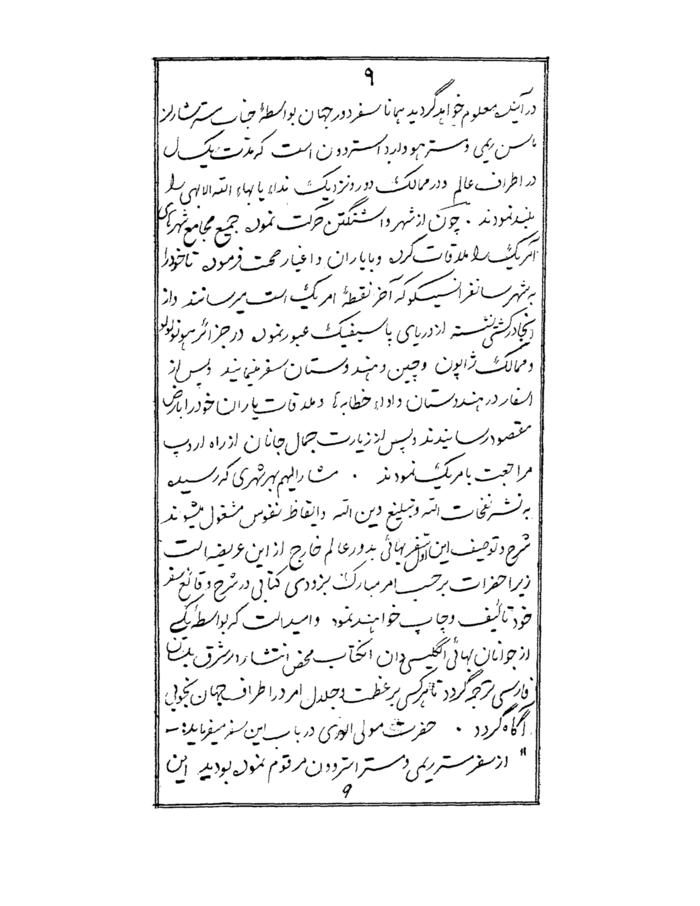 ۹
در آینده معلوم خواهد گردید همانا سفر دور جهان بواسطهٔ جناب مستر شارلز
ماسن ریمی و مستر هوارد استرون است که مدّت یکسال
در اطراف عالم و در ممالک دور و نزدیک نداء یا بهاء الله الابهی را
بلند نمودند ۰ چون از شهر واشنگتن حرکت نموده جمیع مجامع شهرهای
آمریک را ملاقات کرده و با یاران و اغیار صحبت فرموده تا خود را
به شهر سانفرانسیسکو که آخر نقطهٔ امریک است میرسانند و از
آنجا در کشتی نشسته از دریای پاسیفیک عبور نموده در جزائر هونولولو
و ممالک ژاپون و چین و هندوستان سفر مینمایند و پس از
اسفار در هندوستان و اداء خطابه ها و ملاقات یاران خود را بارض
مقصود رسانیدند و پس از زیارت جمال جانان از راه اروپ
مراجعت بامریک نمودند ۰ مشار الیهم بهر شهری که رسیده
به نشر نفحات الله و تبلیغ دین الله و ایقاظ نفوس مشغول میشوند
شرح و توصیف این اوّل سفر بهائی بدور عالم خارج از این عریضه است
زیرا حضرات بر حسب امر مبارک بزودی کتابی در شرح وقائع سفر
خود تألیف و چاپ خواهند نمود و امید است که بواسطهٔ یکی
از جوانان بهائی انگلیسی دان آنکتاب محض انتشار در شرق بلسان
فارسی ترجمه گردد تا هر کسی بر عظمت و جلال امر در اطراف جهان بخوبی
آگاه گردد ۰ حضرت مولی الوری در باب این سفر میفرماید :ـ
" از سفر مستر ریمی و مستر استرودون مرقوم نموده بودید این
۹